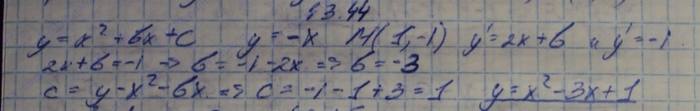 43.44
y = x² + bx + c y = -x M(1,-1) y' = 2x + b и y' = -1
2x + b = -1 => b = -1 - 2x => b = -3
c = y - x² - bx => c = -1 - 1 + 3 = 1 y = x² - 3x + 1